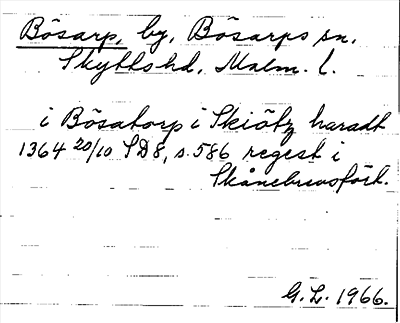 Bösarp, by, Bösarps sn,
Skytts hd, Malm. l.
i Bösatorp i Skiötz haradt
1364 20/10 SD8, s. 586 regest i
Skånebrevsfört.
G.L. 1966.